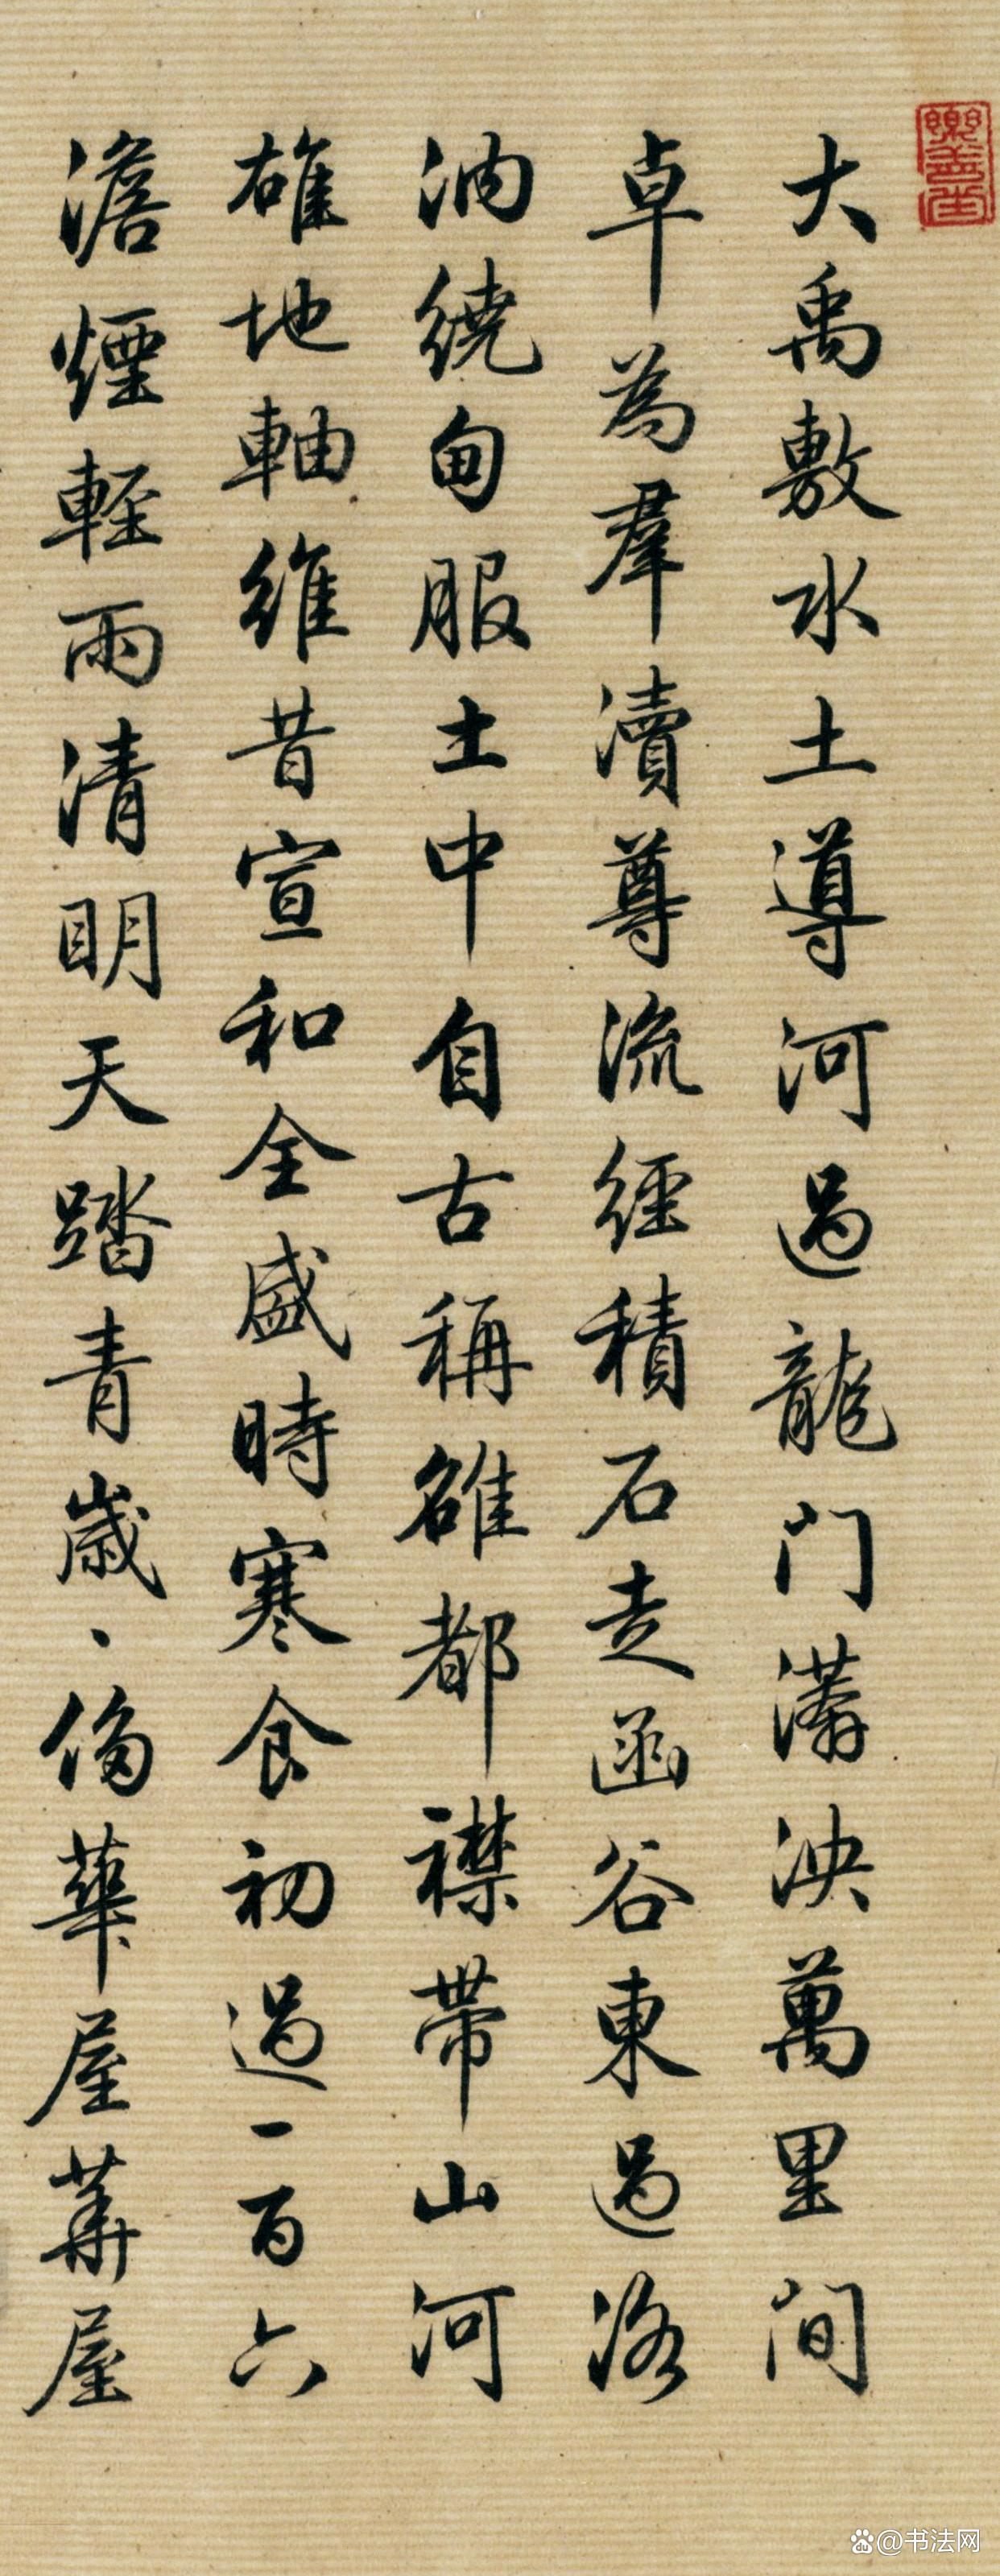 樂善堂
大禹敷水土導河過龍門泱萬里間
卓為羣瀆尊流經積石走函谷東過洛
汭繞甸服土中自古稱雒都襟帶山河
雄地軸維昔宣和全盛時寒食初過一百六
澹煙輕雨清明天踏青歲、華屋華屋
@书法网